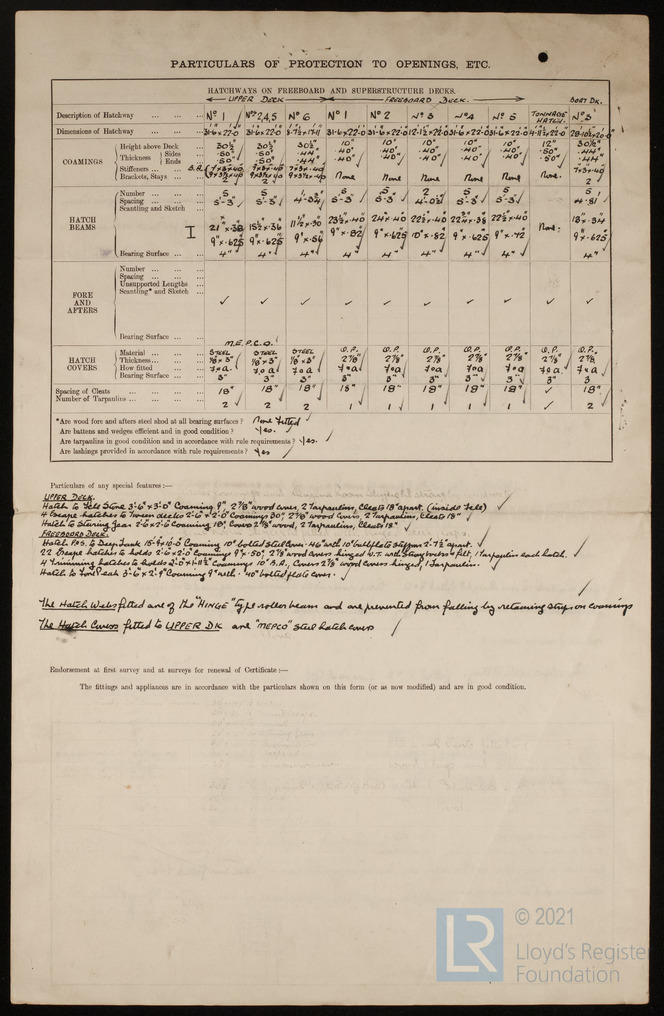 PARTICULARS OF PROTECTION TO OPENINGS, ETC.
HATCHWAYS ON FREEBOARD AND SUPERSTRUCTURE DECKS.
UPPER DECK FREEBOARD DECK. BOAT DK.
Description of Hatchway ... ... Nº 1 Nº 2,4,5 Nº 6 Nº 1 Nº 2 Nº 3 Nº 4 Nº 5 TONNAGE HATCH. Nº 3
Dimensions of Hatchway ... 31-6 x 22-0 31-6 x 22-0 31-6 x 22-0 31-6 x 22-0 31-6 x 22-0 31-6 x 22-0
COAMINGS
Height above Deck ... 30½" 30½" 30½" 10" 10" 10" 10" 10" 12" 30½"
Thickness Sides ... .50" .50" .44" .40" .40" .40" .40" .40" .50" .44"
Ends ... .50" .50" .44" .40" .40" .40" .40" .40" .50" .44"
Stiffeners ... B.A. 7x3x.40 7x3x.40 7x3x.40 7x3x.40
Brackets, Stays ... 2 2 None None None None None None. 2
HATCH BEAMS
Number ... ... 5 5 5 5 2 5 5 5
Spacing ... ... 5'-3" 5'-3" 5'-3" 5'-3" 5'-3" 5'-3" 4.81
Scantling and Sketch ...
I 21" x .38 15½ x .36 11½ x .30 23½ x .40 24 x .40 22½ x .40 22½ x .38 22½ x .40 None. 18" x .34
9" x .625 9" x .625 9" x .56 9" x .82 9" x .625 10" x .82 9" x .625 9" x .72 9" x .625
Bearing Surface ... 4" 4" 4" 4" 4" 4" 4" 4" 4"
FORE AND AFTERS
Number ... ...
Spacing ... ...
Unsupported Lengths ...
Scantling* and Sketch ...
✓ ✓ ✓ ✓ ✓ ✓ ✓ ✓ ✓ ✓
Bearing Surface ...
M.E.P.C.O.
HATCH COVERS
Material ... ... STEEL STEEL STEEL O.P. O.P. O.P. O.P. O.P. O.P. O.P.
Thickness ... ... 2⅞" 2⅞" 2⅞" 2⅞" 2⅞" 2⅞" 2⅞
How fitted ... ... F & A F & A F & A F & A F & A F & A F & A F & A F & A F & A
Bearing Surface ... 3" 3" 3" 3" 3" 3" 3" 3" 3 3
Spacing of Cleats ... ... ... 18" 18" 18" 18" 18" 18" 18" 18" ✓ 18"
Number of Tarpaulins ... ... 2 2 2 1 1 1 1 1 ✓ 2
*Are wood fore and afters steel shod at all bearing surfaces? None fitted
Are battens and wedges efficient and in good condition? Yes.
Are tarpaulins in good condition and in accordance with rule requirements? Yes.
Are lashings provided in accordance with rule requirements? Yes
Particulars of any special features:—
UPPER DECK.
Hatch to Felt Store 3'-6" x 3'-0" Coaming 9", 2⅞" wood cover, 2 Tarpaulins, Cleats 18" apart. (inside Felt)
4 Escape hatches to Tween decks 2'-6" x 2'-0" Coamings 30", 2⅞" wood covers, 2 Tarpaulins, Cleats 18"
Hatch to Steering Gear 2'-6 x 2'-6 Coaming 18", Cover 2⅞" wood, 2 Tarpaulins, Cleats 18"
FREEBOARD DECK.
Hatch P&S. to Deep Tank 15'-9 x 10'-0 Coaming 10" bolted steel cover .46" with 10" bulb plate stiffeners 2'-7½" apart.
22 Escape hatches to holds 2'-6 x 2'-0 Coamings 9" x .50", 2⅞" wood covers hinged W.T. with strongbacks & felt, 1 Tarpaulin each hatch.
4 Trimming hatches to holds Coamings 10" B.A., Covers 2⅞" wood covers hinged, 1 Tarpaulin.
Hatch to Fore Peak 3'-6" x 2'-9" Coaming 9" with .40" bolted plate cover.
The Hatch Webs fitted are of the "HINGE" type roller beam and are prevented from falling by retaining strips on coamings
The Hatch Covers fitted to UPPER DK are "MEPCO" steel hatch covers
Endorsement at first survey and at surveys for renewal of Certificate:—
The fittings and appliances are in accordance with the particulars shown on this form (or as now modified) and are in good condition.
LR
© 2021
Lloyd's Register
Foundation